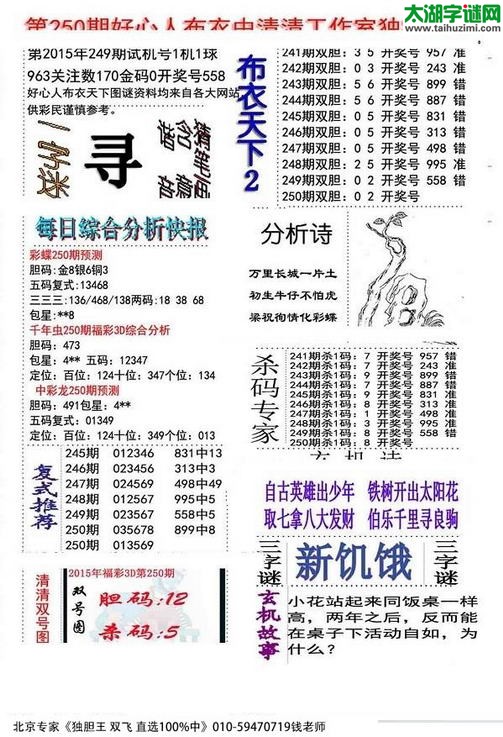 太湖字谜网
www.taihuzimi.com
第250期好心人布衣由清清工作室独
第2015年249期试机号1机1球
963关注数170金码0开奖号558
好心人布衣天下图谜资料均来自各大网站
供彩民谨慎参考。
寻
布衣天下2
241期双胆：3 5 开奖号 957 准
242期双胆：0 3 开奖号 243 准
243期双胆：5 6 开奖号 899 错
244期双胆：5 6 开奖号 887 错
245期双胆：0 6 开奖号 831 错
246期双胆：0 5 开奖号 313 错
247期双胆：0 5 开奖号 498 错
248期双胆：2 5 开奖号 995 准
249期双胆：0 2 开奖号 558 错
250期双胆：0 2 开奖号
每日综合分析快报
彩蝶250期预测
胆码：金8银6铜3
五码复式：13468
三三三：136/468/138两码：18 38 68
包星：**8
千年虫250期福彩3D综合分析
胆码：473
包星：4** 五码：12347
定位：百位：124十位：347个位：134
中彩龙250期预测
胆码：491包星：4**
五码复式：01349
定位：百位：124十位：349个位：013
分析诗
万里长城一片土
初生牛仔不怕虎
梁祝徇情化彩蝶
杀码专家
241期杀1码：7 开奖号 957 错
242期杀1码：7 开奖号 243 准
243期杀1码：9 开奖号 899 错
244期杀1码：7 开奖号 887 错
245期杀1码：3 开奖号 831 错
246期杀1码：6 开奖号 313 准
247期杀1码：1 开奖号 498 准
248期杀1码：3 开奖号 995 准
249期杀1码：8 开奖号 558 错
250期杀1码：8 开奖号
复式推荐
245期 012346 831中13
246期 023456 313中3
247期 024569 498中49
248期 012567 995中5
558中5
250期 035678 899中8
250期 013569
玄机诗
自古英雄出少年 铁树开出太阳花
取七拿八大发财 伯乐千里寻良驹
清清双号图
2015年福彩3D第250期
双号图
胆码：12
杀码：5
三字谜
新饥饿
三字谜
玄机故事
小花站起来同饭桌一样
高，两年之后，反而能
在桌子下活动自如，为
什么？
北京专家《独胆王 双飞 直选100%中》010-59470719钱老师